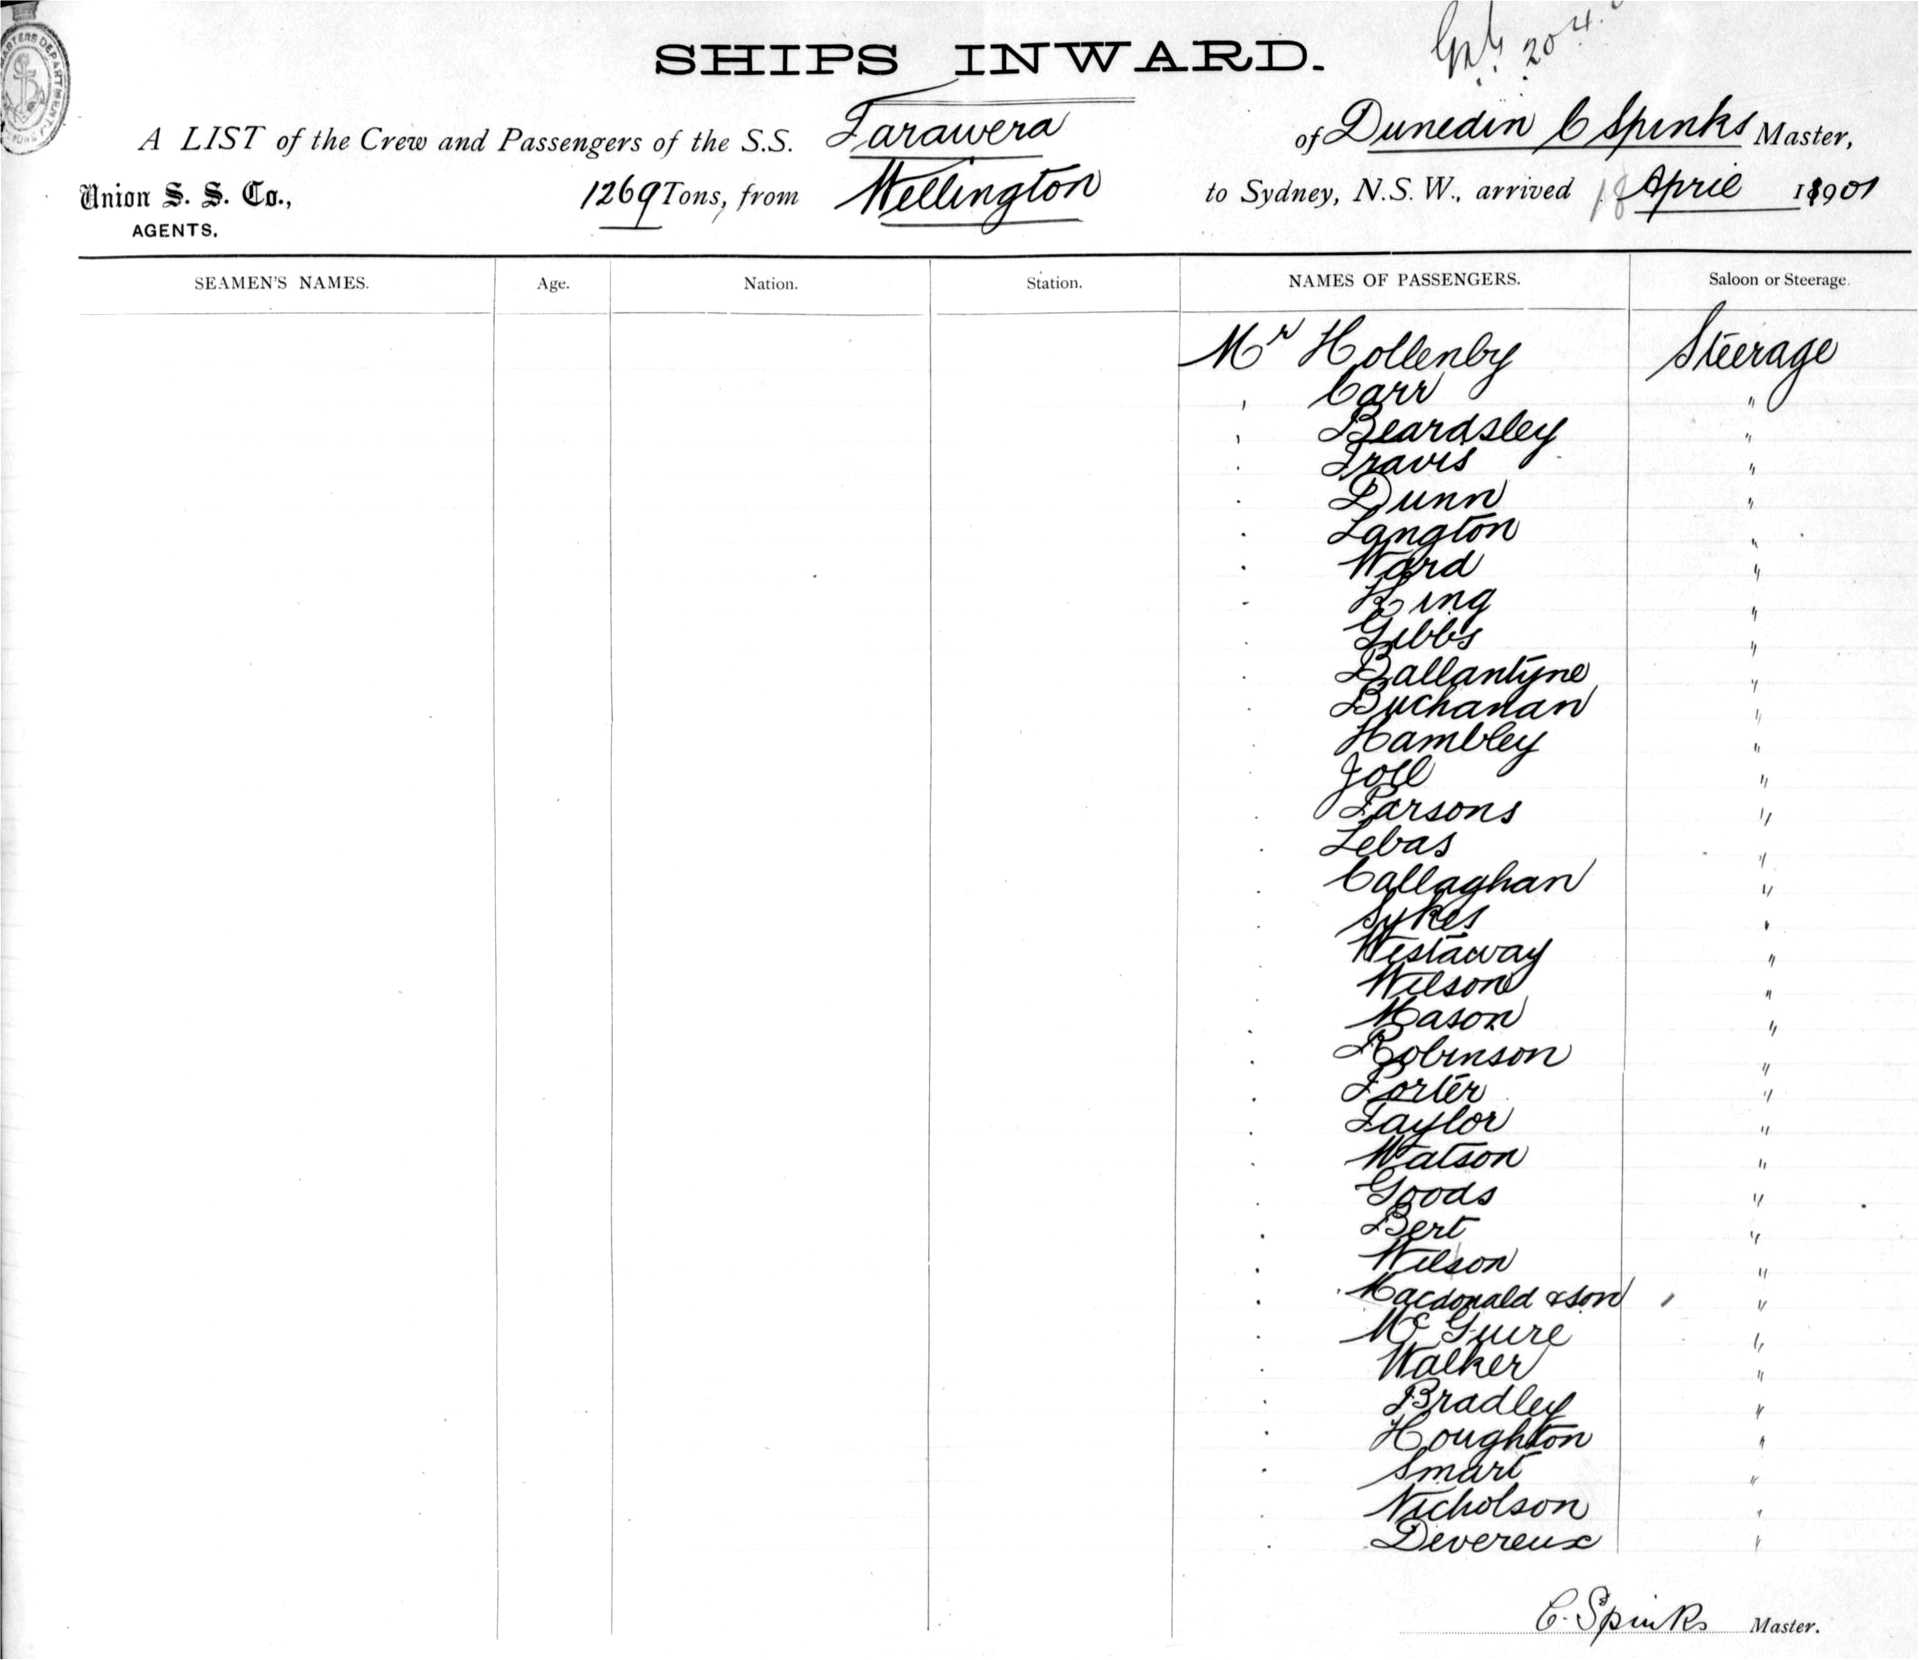 SHIPS INWARD.
20
A LIST of the Crew and Passengers of the S.S. Tarawera of Dunedin C Spinks Master,
Union S. S. Co., 1269 Tons, from Wellington to Sydney, N.S.W., arrived 18 April 1901
AGENTS.
SEAMEN'S NAMES. Age. Nation. Station. NAMES OF PASSENGERS. Saloon or Steerage.
Mr Hollenby Steerage
, Carr "
, Beardsley "
. Travis "
. Dunn "
. Langton "
. Ward "
- King "
. Gibbs "
. Ballantyne "
. Buchanan "
. Hambley "
. Joll "
. Parsons "
. Lebas "
. Callaghan "
. Sykes "
. Westaway "
. Wilson "
. Mason "
. Robinson "
. Porter "
. Taylor "
. Watson "
. Goods "
. Bert "
. Wilson "
. Macdonald & son "
. McGuire "
. Walker "
. Bradley "
. Houghton "
. Smart "
. Nicholson "
. Devereux "
C. Spinks Master.